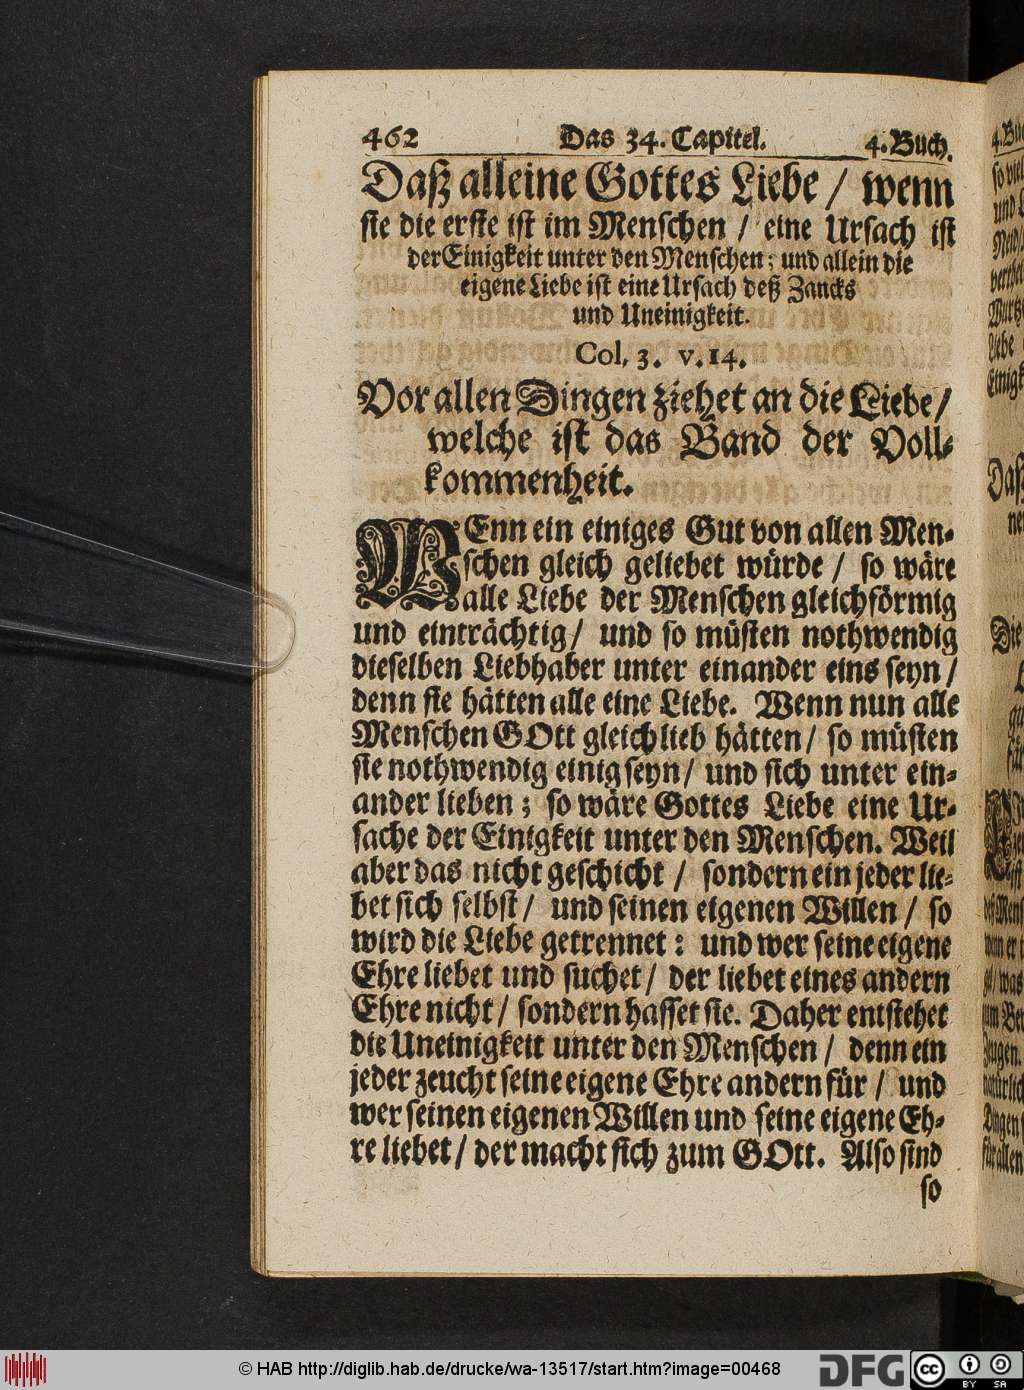 462 Das 34. Capitel. 4. Buch.
Daß alleine Gottes Liebe / wenn
sie die erste ist im Menschen / eine Ursach ist
der Einigkeit unter den Menschen; und allein die
eigene Liebe ist eine Ursach deß Zancks
und Uneinigkeit.
Col. 3. v. 14.
Vor allen Dingen ziehet an die Liebe /
welche ist das Band der Voll-
kommenheit.
WEnn ein einiges Gut von allen Men-
schen gleich geliebet würde / so wäre
alle Liebe der Menschen gleichförmig
und einträchtig / und so müsten nothwendig
dieselben Liebhaber unter einander eins seyn /
denn sie hätten alle eine Liebe. Wenn nun alle
Menschen GOtt gleich lieb hätten / so müsten
sie nothwendig einig seyn / und sich unter ein-
ander lieben; so wäre Gottes Liebe eine Ur-
sache der Einigkeit unter den Menschen. Weil
aber das nicht geschicht / sondern ein jeder lie-
bet sich selbst / und seinen eigenen Willen / so
wird die Liebe getrennet: und wer seine eigene
Ehre liebet und suchet / der liebet eines andern
Ehre nicht / sondern hasset sie. Daher entstehet
die Uneinigkeit unter den Menschen / denn ein
jeder zeucht seine eigene Ehre andern für / und
wer seinen eigenen Willen und seine eigene Eh-
re liebet / der macht sich zum GOtt. Also sind
so
© HAB http://diglib.hab.de/drucke/wa-13517/start.htm?image=00468
DFG
cc BY SA